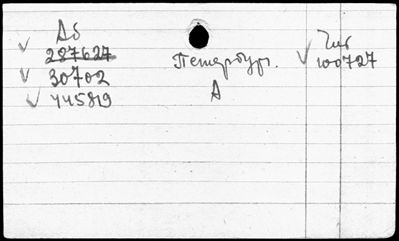 Аб
287627
30702
445819
Петербург.
А
Чит
100727